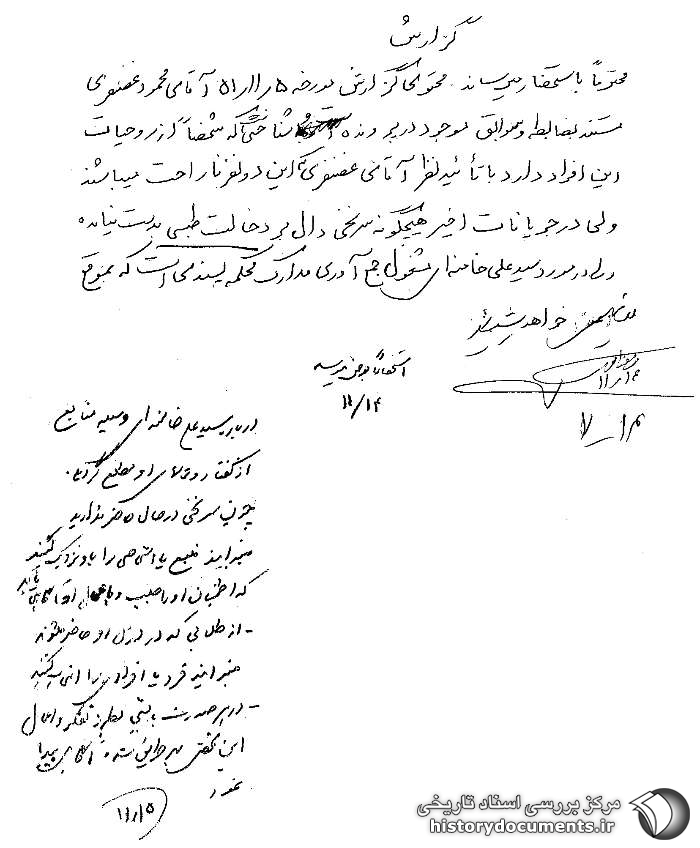 گزارش
محترماً باستحضار میرساند. محتوای گزارش مورخه ۵ر۱۱ر۵۱ آقای محمود غضنفری
مستند بضابطه و سوابق موجود در پرونده و شناختی که شخصاً از روحیات
این افراد دارد با تأئید نظر آقای غضنفری که این دو نفر ناراحت میباشند
ولی در جریانات اخیر هیچگونه سرنخی دال بر دخالت طبسی بدست نیامده
ولی در مورد سید علی خامنه‌ای مشغول جمع آوری مدارک محکمه پسندی است که بموقع
بعرض خواهد
۱۱٫۱۴
استحضاراً بعرض میرسد
۱۱/۱۴
۷ـ۱۴
درباره سید علی خامنه‌ای وسیله منابع
از گفتار و او مطلع گردید.
چون سرنخی در حال حاضر ندارید
میتوانید منبع یا اشخاصی را باو نزدیک کنید
که اطمینان او را جلب و باعمال او آگاهی یابد
- از طلابی که در منزل او حاضر میشوند
میتوانید فرد یا افرادی را انتخاب کنید
- در هر صورت بایستی بطرز تفکر و اعمال
این شخص بهر طریق شده آگاهی پیدا
نمود
۱۱٫۱۵
مرکز بررسی اسناد تاریخی
historydocuments.ir